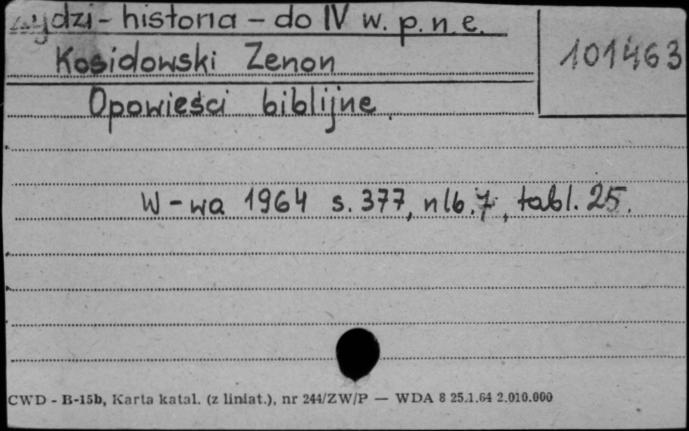 Żydzi - historia - do IV w. p. n. e.
101463
Kosidowski Zenon
Opowieści biblijne.
W-wa 1964 s. 377, nlb. 7, tabl. 25.
CWD - B-15b, Karta katal. (z liniat.), nr 244/ZW/P — WDA 8 25.1.64 2.010.000